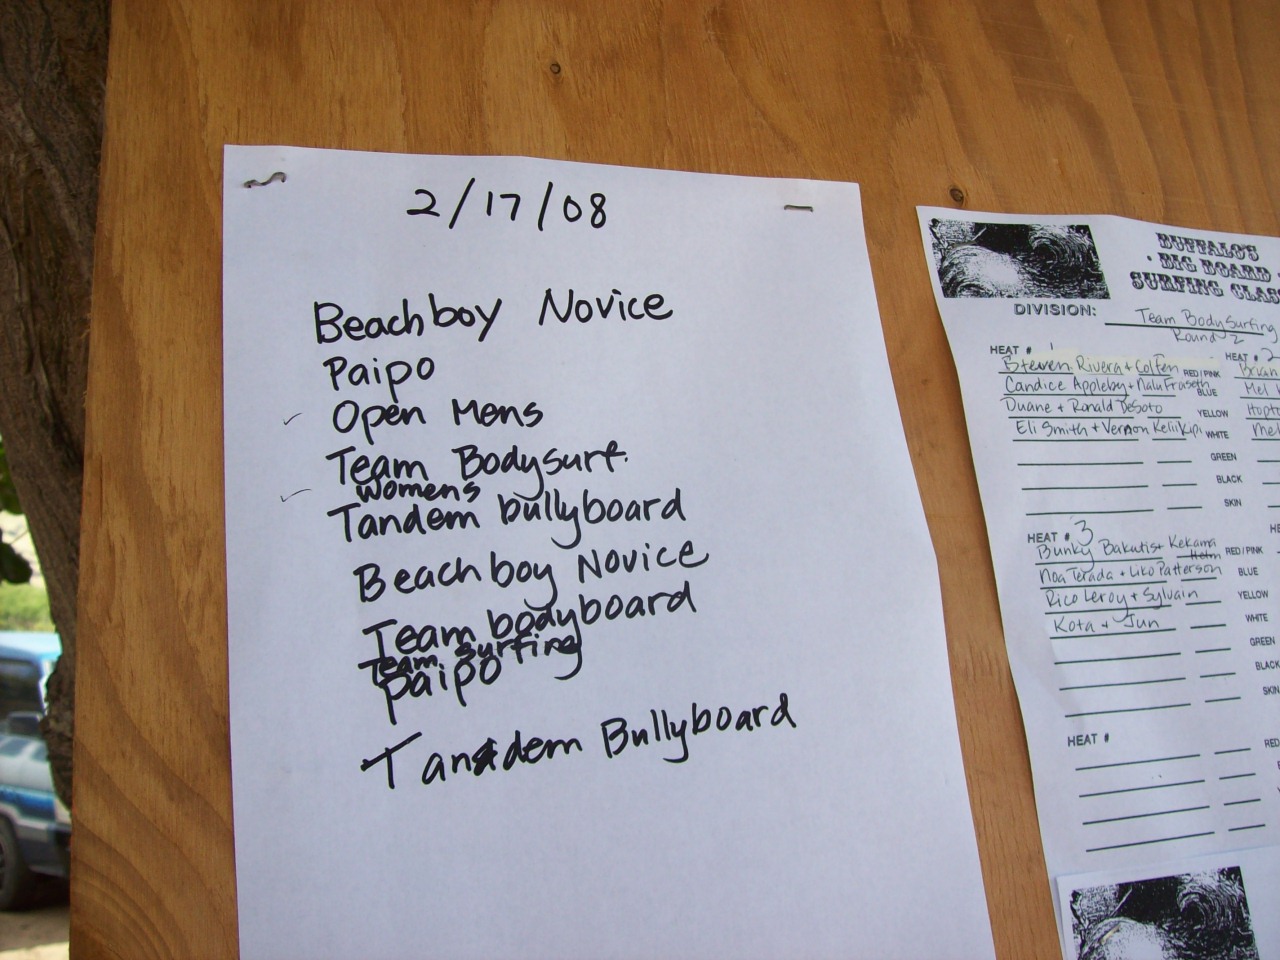 2/17/08
Beachboy Novice
Paipo
Open Mens
Team Bodysurf.
womens
Tandem bullyboard
Beachboy Novice
Team bodyboard
Team surfing
paipo
Tandem Bullyboard
BUFFALO'S
BIG BOARD
SURFING CLAS
DIVISION: Team Bodysurfing
Round 2
HEAT # 1
Steven Rivera + Colfen RED/PINK
Candice Appleby + Nalu Fraseth BLUE
Duane + Ronald DeSoto YELLOW
Eli Smith + Vernon Keliikipi WHITE
GREEN
BLACK
SKIN
HEAT # 2
Brian
Mel
Mel
HEAT # 3
Bunky Bakutis + Kekama RED/PINK
Noa Terada + Liko Patterson BLUE
Rico Leroy + Sylvain YELLOW
Kota + Jun WHITE
GREEN
BLACK
SKIN
HEAT #
RED